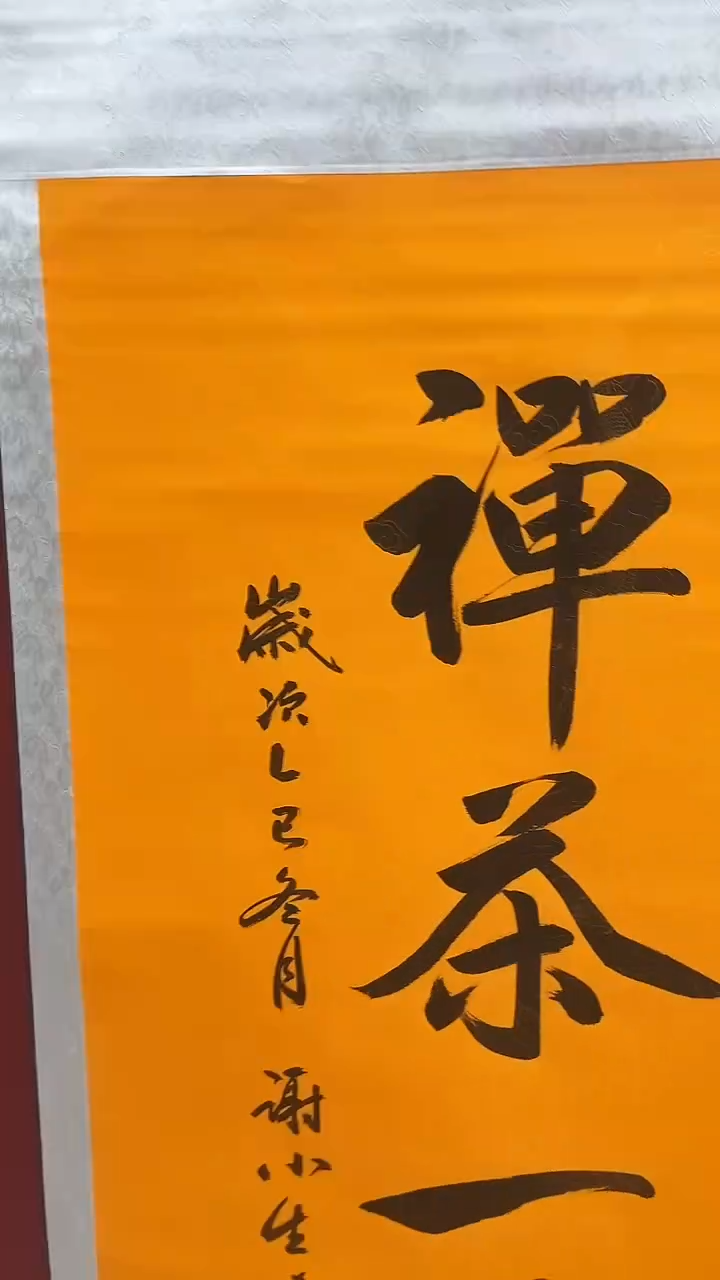 禪茶一
歲次乙巳冬月 谢小生